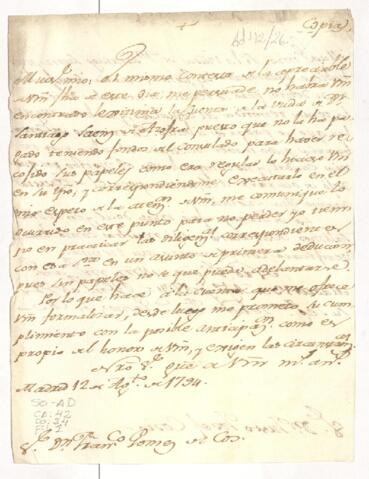 +
Copia
Ad 142/26
Muy S.or mio, el mismo contexto de la apreciable
de Vm fha de este dia, me persuade no havia Vm
encontrado legitima la cuenta de la viuda de D.n
Santiago Saenz de Azofra puesto que no lo ha pa-
gado teniendo fondos del Consulado para haver re-
cojido sus papeles como era regular lo hiciera Vm
en su tpo, y correspondiendome executarlo en el
mio espero de la aten.on de Vm, me comunique lo
ocurrido en este punto para no perder yo tiem-
po en practicar las diligencias correspondientes
con esa en un asunto de primera deduccion
pues sin papeles no se que pueda adelantarse.
Por lo que hace a la cuenta que me ofrece
Vm formalizar, desde luego me prometo su cum-
plimiento con la posible anticipaz.on como es
propio del honor de Vm, y exijen las circunstan.as
Dios g.e a Vm m.s a.s
Madrid 12 de Ag.to de 1794
S.r D.n Fran.co Gomez de Cos.
SO-AD
CA: 42
DO: 34